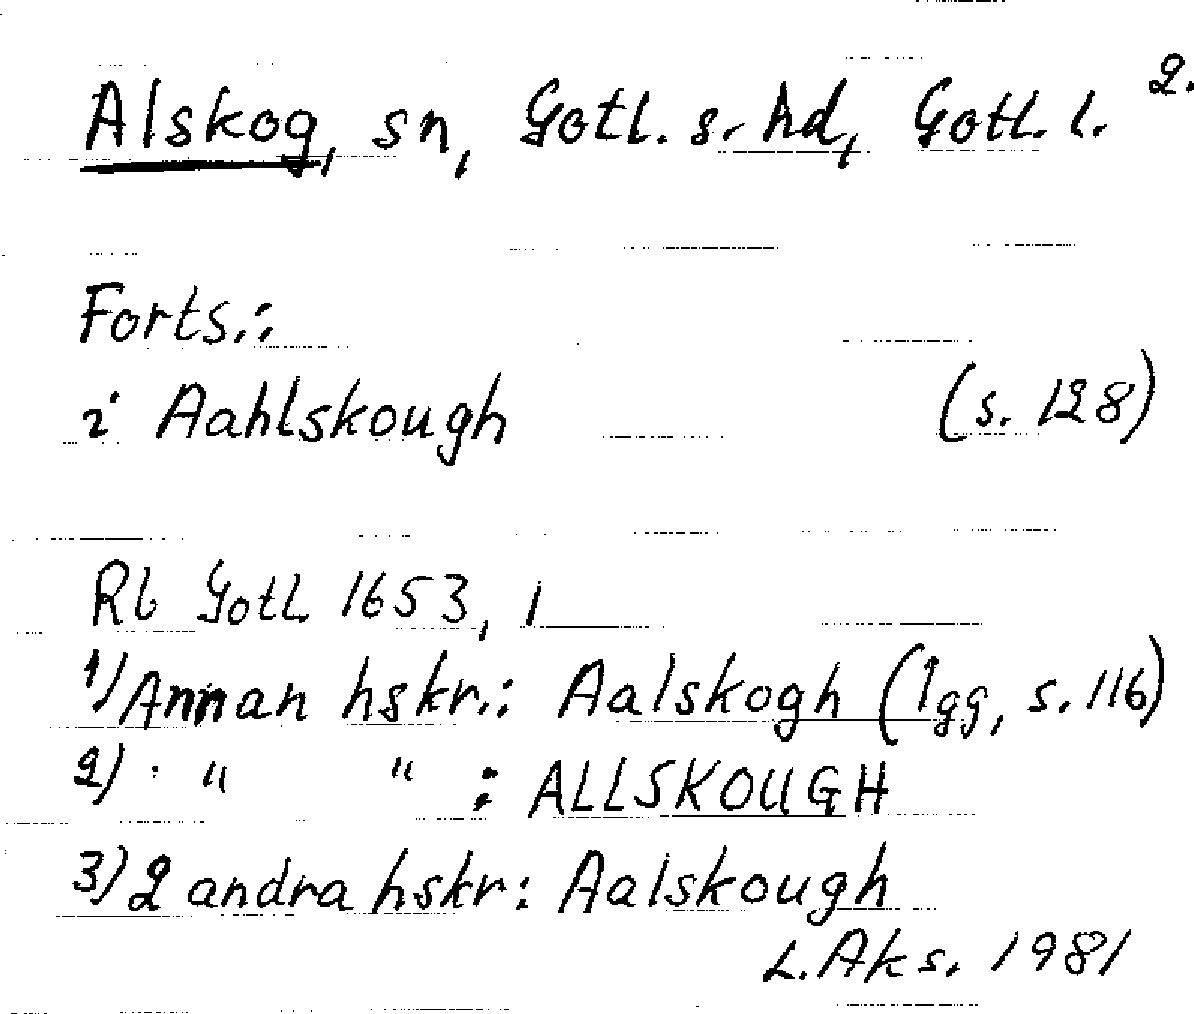 Alskog, sn, Gotl. s. hd, Gotl. l. 2.
Forts.:
i Aahlskough (s. 128)
Rb Gotl 1653, 1
1) Annan hskr.: Aalskogh (lgg, s. 116)
2) " " : ALLSKOUGH
3) 2 andra hskr: Aalskough
L. Aks. 1981